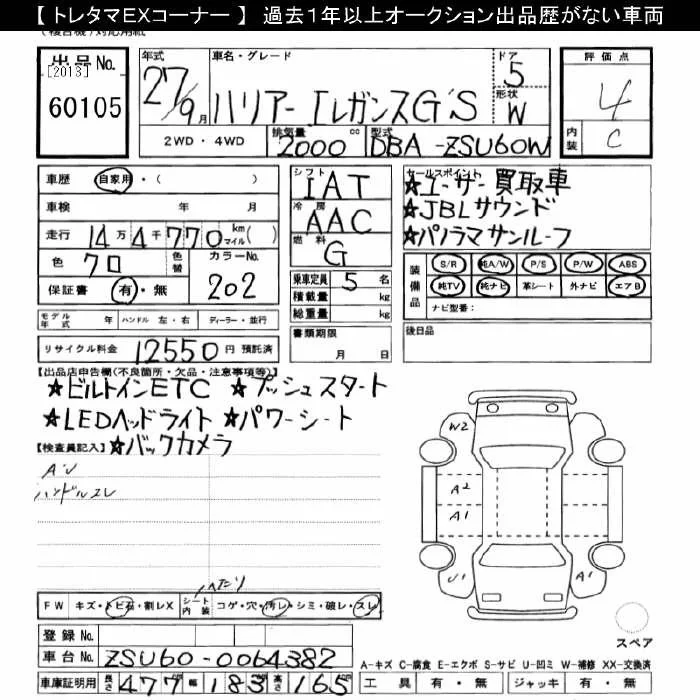 【 トレタマEXコーナー 】 過去1年以上オークション出品歴がない車両
出品No.
[2013]
60105
年式
27/9月
車名・グレード
ハリアー エレガンスG'S
ドア
5
形状
W
評価点
4
内装
C
2WD・4WD
排気量
2000 cc
型式
DBA-ZSU60W
車歴 自家用・( )
車検 年 月
走行 14万4千770 km マイル( )
色 クロ
色替
カラーNo.
202
保証書 有・無
シフト
IAT
冷房
AAC
燃料
G
乗車定員 5 名
積載量 kg
総重量 kg
セールスポイント
★ユーザー買取車
★JBLサウンド
★パノラマサンルーフ
装備品
S/R 純A/W P/S P/W ABS
純TV 純ナビ 革シート 外ナビ エアB
ナビ型番:
モデル年式 年 ハンドル 左・右 ディーラー・並行
書類期限
月 日
後日品
リサイクル料金 12550 円 預託済
【出品店申告欄(不良箇所・欠品・注意事項等)】
★ビルトインETC ★プッシュスタート
★LEDヘッドライト ★パワーシート
★バックカメラ
【検査員記入】
A'U
ハンドルスレ
W2
A2
A1
U1
A1
スペア
ヘタリ
FW キズ・トビ石・割レX
シート内装 コゲ・穴・汚レ・シミ・破レ・スレ
登録No.
車台No. ZSU60-0064382
車庫証明用 長さ 477 幅 183 高さ 165
A-キズ C-腐食 E-エクボ S-サビ U-凹ミ W-補修 XX-交換済
工具 有・無 ジャッキ 有・無